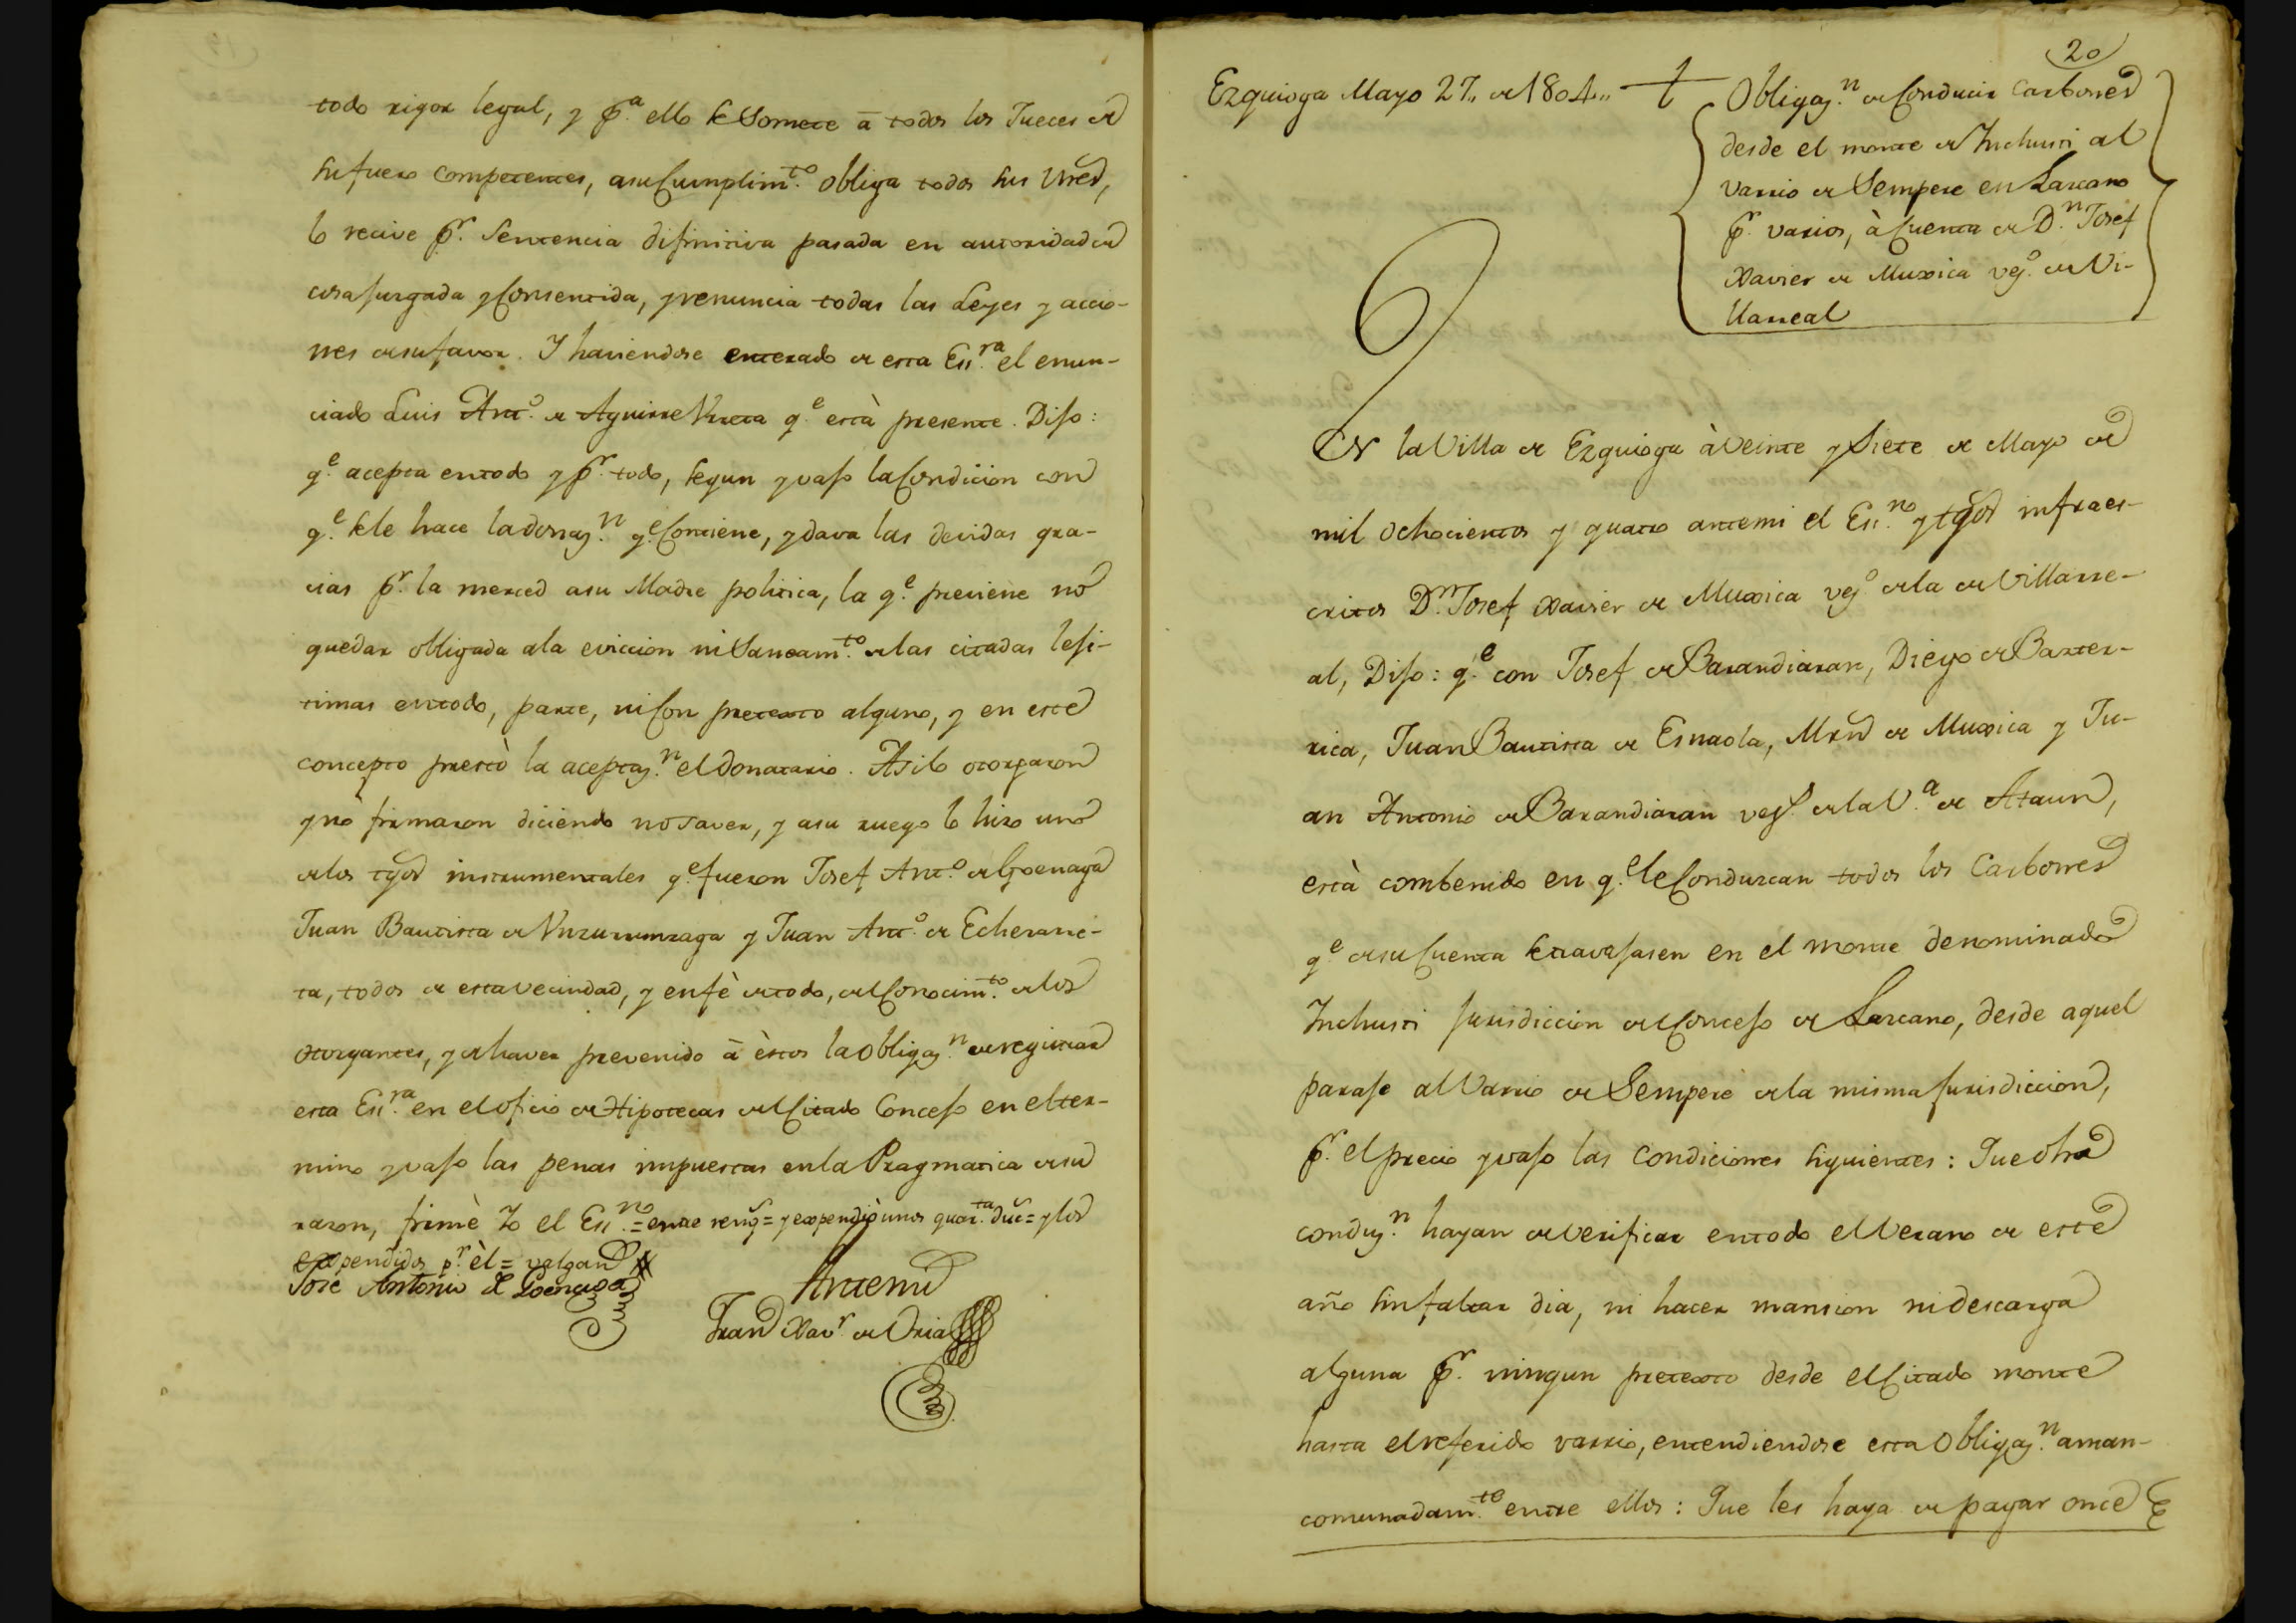 todo rigor legal, y p.ª ello se Somete â todos los Jueces de
su fuero competentes, asu Cumplim.to obliga todos sus Vnes,
lo recive p.r Sentencia difinitiva pasada en autoridad de
cosa jusgada y Consentida, y renuncia todas las Leyes y accio-
nes de su favor. Y haviendose enterado de esta Es.ra el enun-
ciado Luis Ant.o de Aguirre Vrreta q.e està presente. Dijo:
q.e acepta entodo y p.r todo, segun y vajo la Condicion con
q.e se le hace la donaz.n q.e Contiene, y dava las devidas gra-
cias p.r la merced asu Madre politica, la q.e previene no
quedar obligada ala eviccion ni Saneam.to de las citadas leji-
timas entodo, parte, ni Con pretexto alguno, y en este
concepto prestò la aceptaz.n el Donatario. Asi lo otorgaron
y no firmaron diciendo no saver, y asu ruego lo hizo uno
de los tgos instrumentales q.e fueron Josef Ant.o de Goenaga
Juan Bautista de y Juan Ant.o de Echevarrie-
ta, todos de esta vecindad, y en fè de todo, del Conocim.to de los
otorgantes, y de haver prevenido â èstos la Obligaz.n de registrar
esta Es.ra en el oficio de Hipotecas del Citado Concejo en el ter-
mino y vajo las penas impuestas en la Pragmatica de su
razon, firmè Yo el Es.no = entre reng.s = y expendiò unos quar.ta duc.s = y los
expendidos p.r èl = valgan
José Antonio de Goenaga
Antemi
Fran.co Xav.r de Oria
20
Ezquioga Mayo 27,, de 1804,,
Obligaz.n de Conducir Carbones
desde el monte de Inchusti al
varrio de Sempere en Lazcano
p.r varios, à Cuenta de D.n Josef
Xavier de Muxica vez.o de Vi-
llarreal
En la Villa de Ezquioga à Veinte y Siete de Mayo de
mil ochocientos y quatro antemi el Es.no y tgos infraes-
critos D.n Josef Xavier de Muxica vez.o de la de Villarre-
al, Dijo: q.e con Josef de Barandiaran, Diego de Barrer-
rica, Juan Bautista de Esnaola, Mrn de Muxica y Ju-
an Antonio de Barandiaran vez.s de la V.ª de Ataun,
està combenido en q.e le Conduzcan todos los Carbones
q.e de su Cuenta se travajasen en el monte denominado
Inchusti jurisdiccion del Concejo de Lazcano, desde aquel
paraje al Varrio de Sempere de la misma jurisdiccion,
p.r el precio y vajo las condiciones siguientes: Que dha
conduz.n hayan de verificar entodo el Verano de este
año sin faltar dia, ni hacer mansion ni descarga
alguna p.r ningun pretexto desde el Citado monte
hasta el referido varrio, entendiendose esta Obligaz.n aman-
comunadam.te entre ellos: Que les haya de pagar once